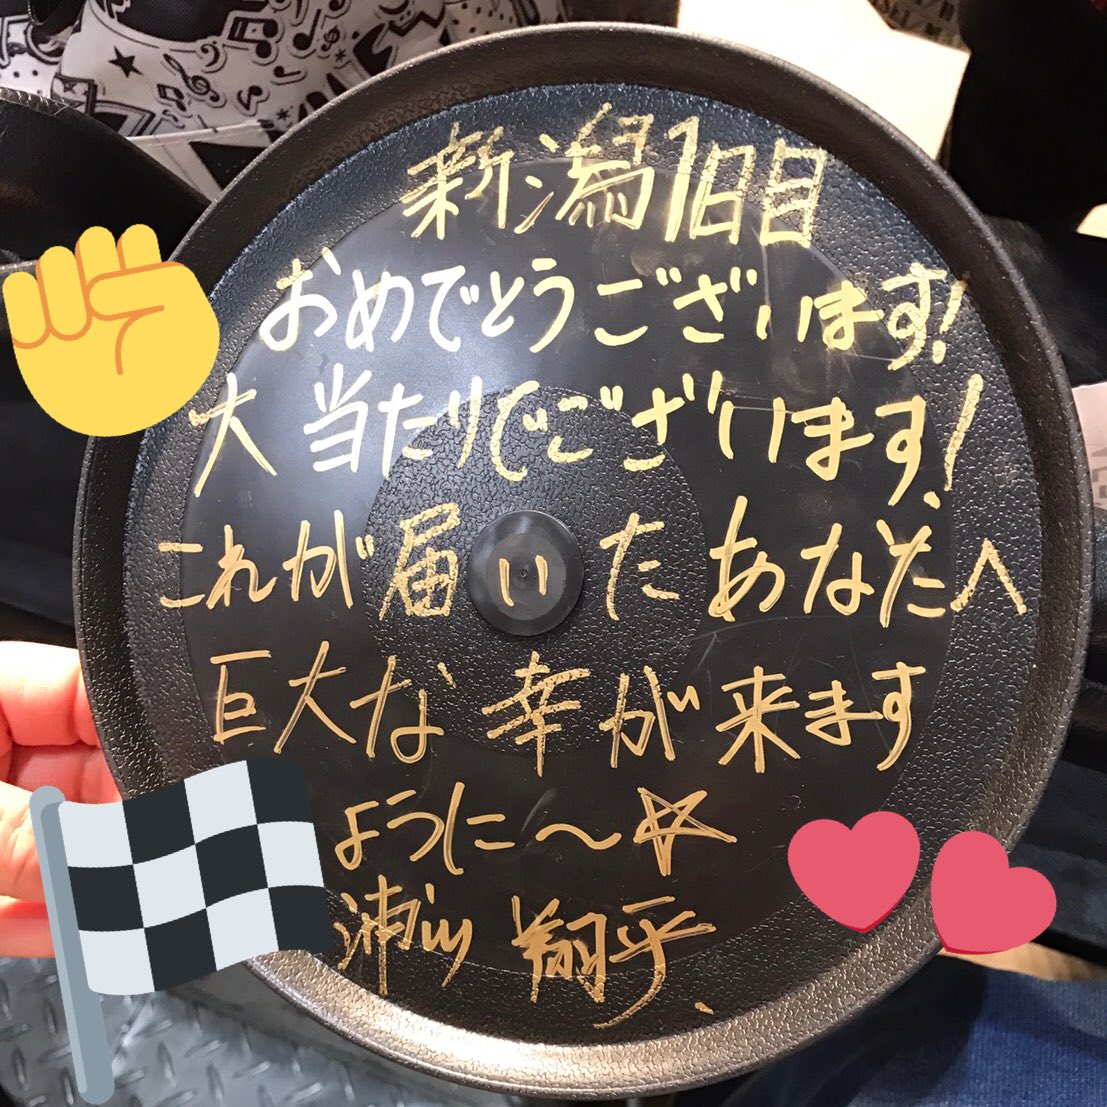 新潟1日目
おめでとうございます!
大当たりでございます!
これが届いたあなたへ
巨大な幸が来ます
ように〜☆
浦川翔平、